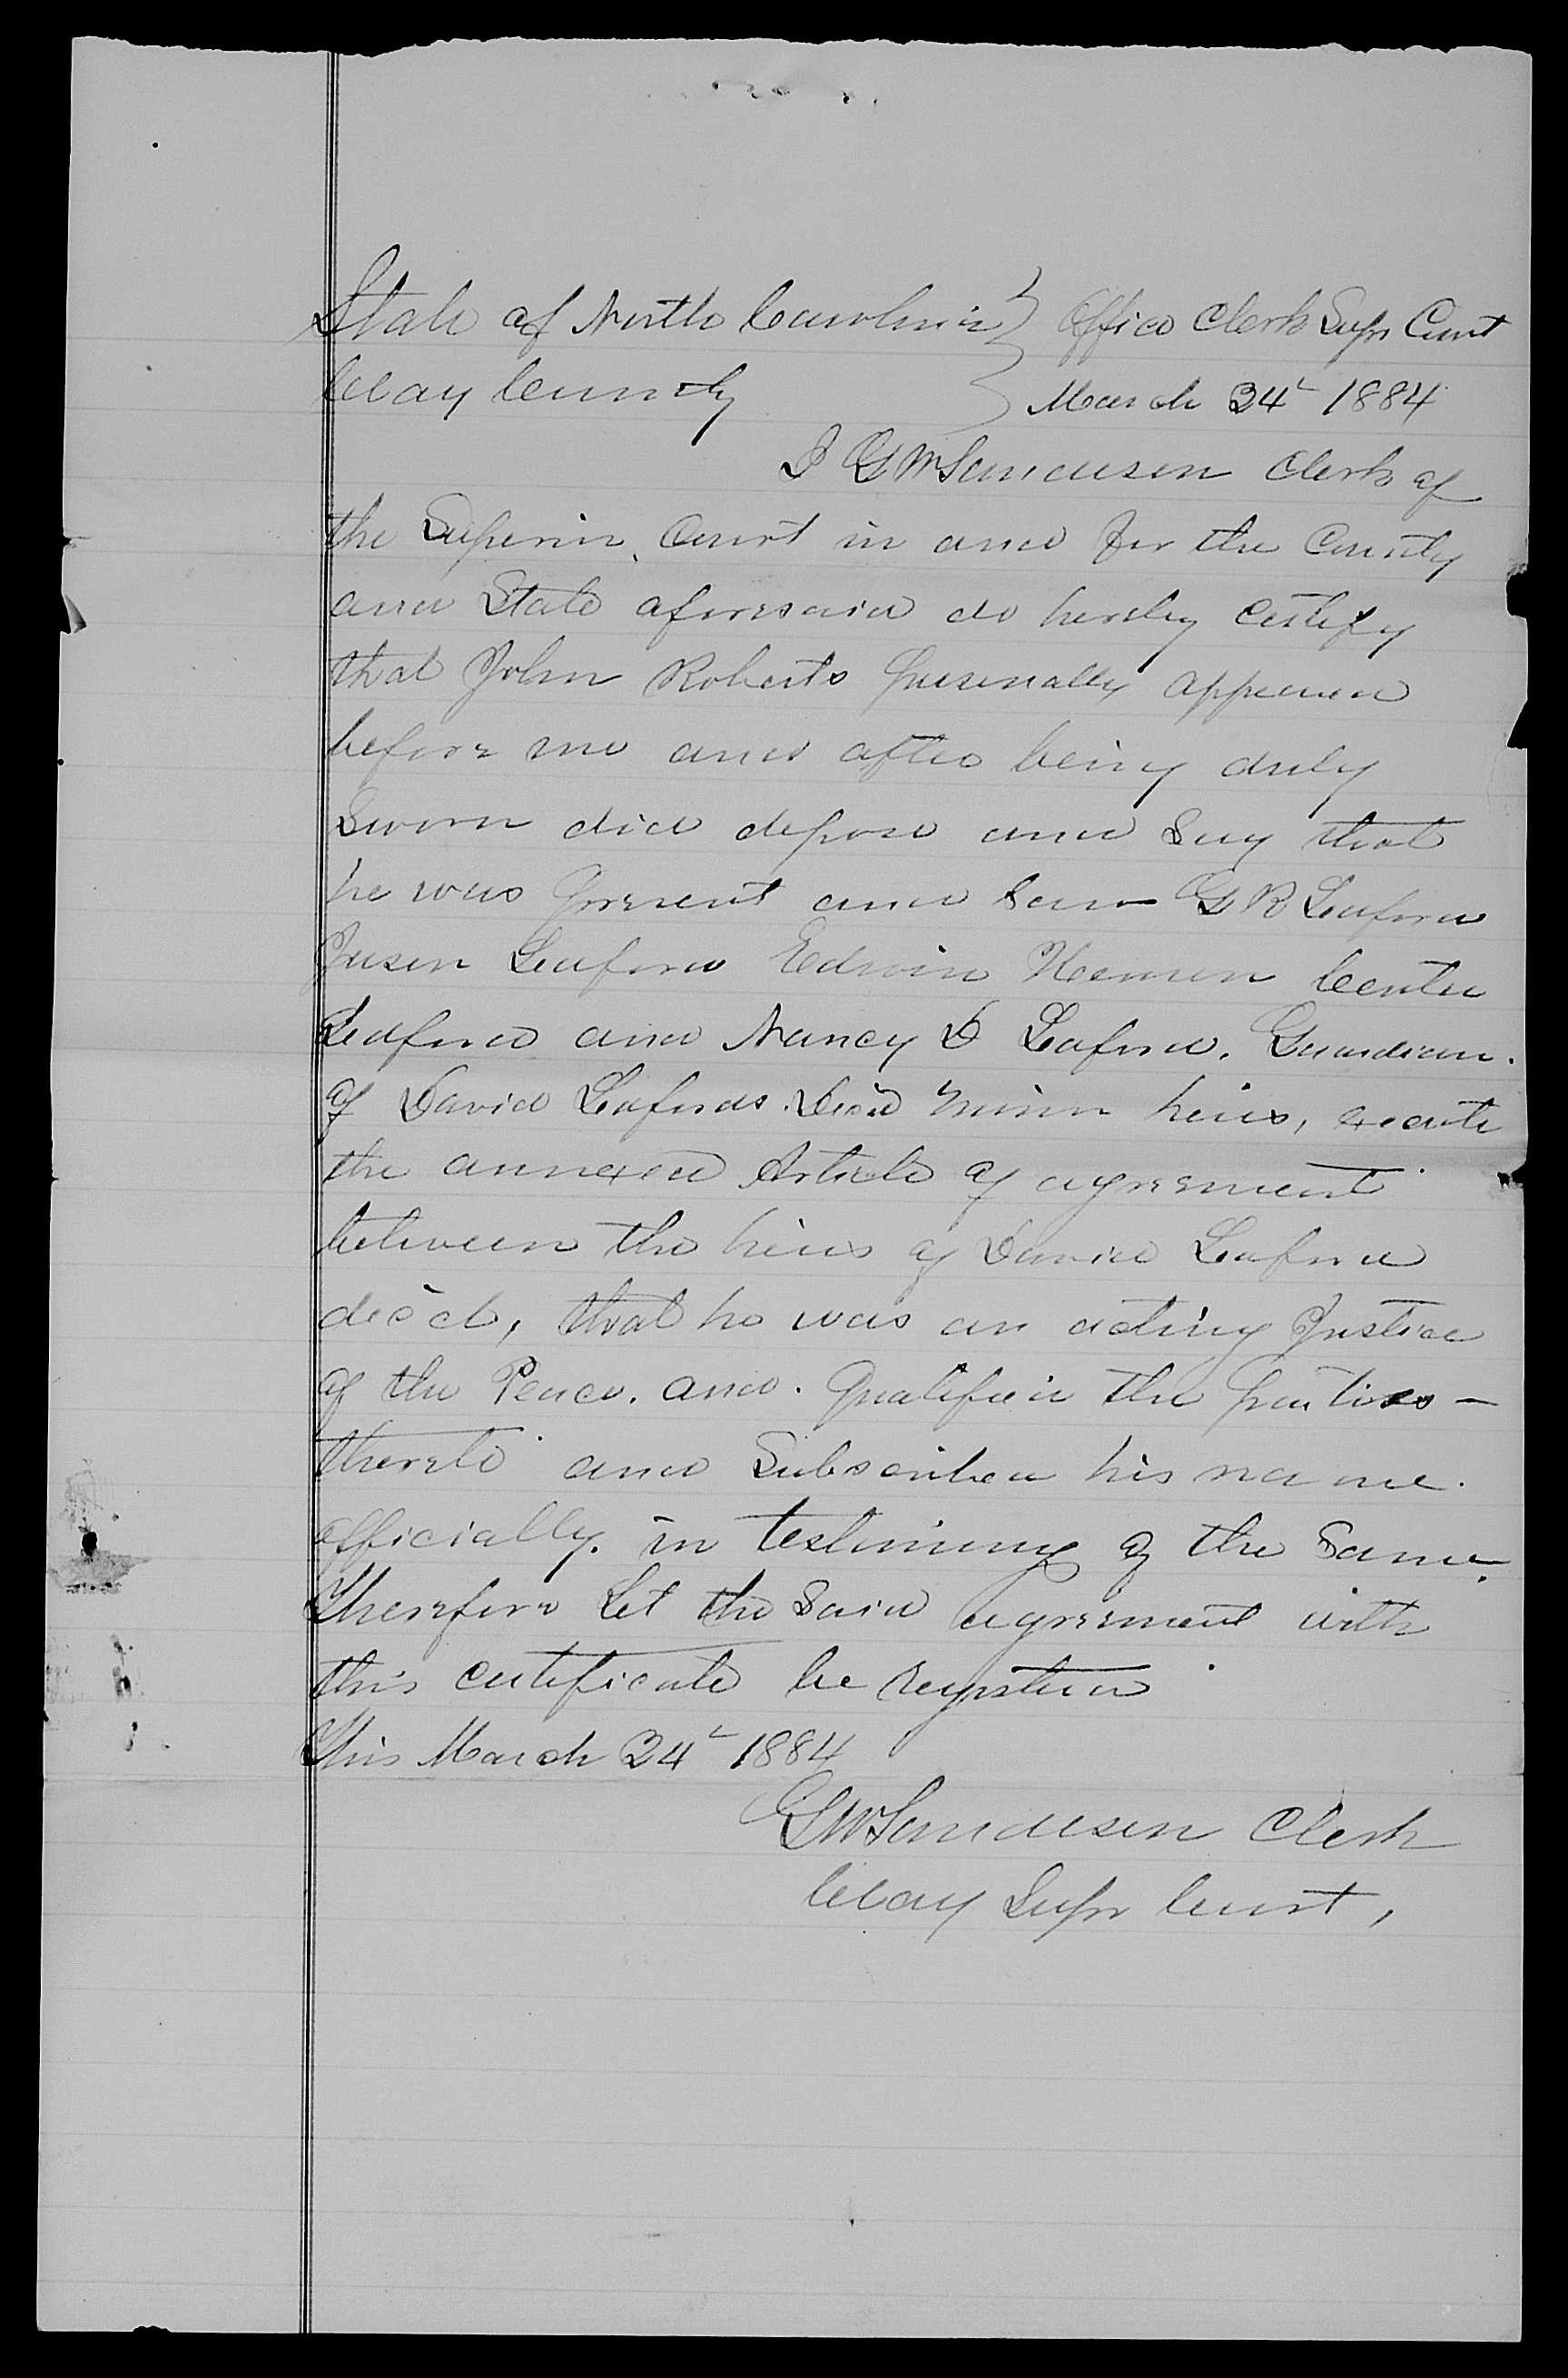 State of North Carolina } Office Clerk Supr Court
Clay County } March 24th 1884
I G W Sanderson Clerk of
the Superior Court in and for the County
and State aforesaid do hereby certify
that John Roberts personally appeared
before me and after being duly
Sworn did depose and Say that
he was present and Saw G R Ledford
Jason Ledford Edwin Curtis
Ledford and Nancy D Ledford. Guardian.
of David Ledfords. Decd minor heirs, execute
the annexed Article of agreement
between the heirs of David Ledford
decd, that he was an acting Justice
of the Peace. and. Qualified the parties —
thereto and Subscribed his name.
officially. in testimony of the Same.
Therefore Let the Said agreement with
this certificate be registered
This March 24th 1884
G W Sanderson Clerk
Clay Supr Court,